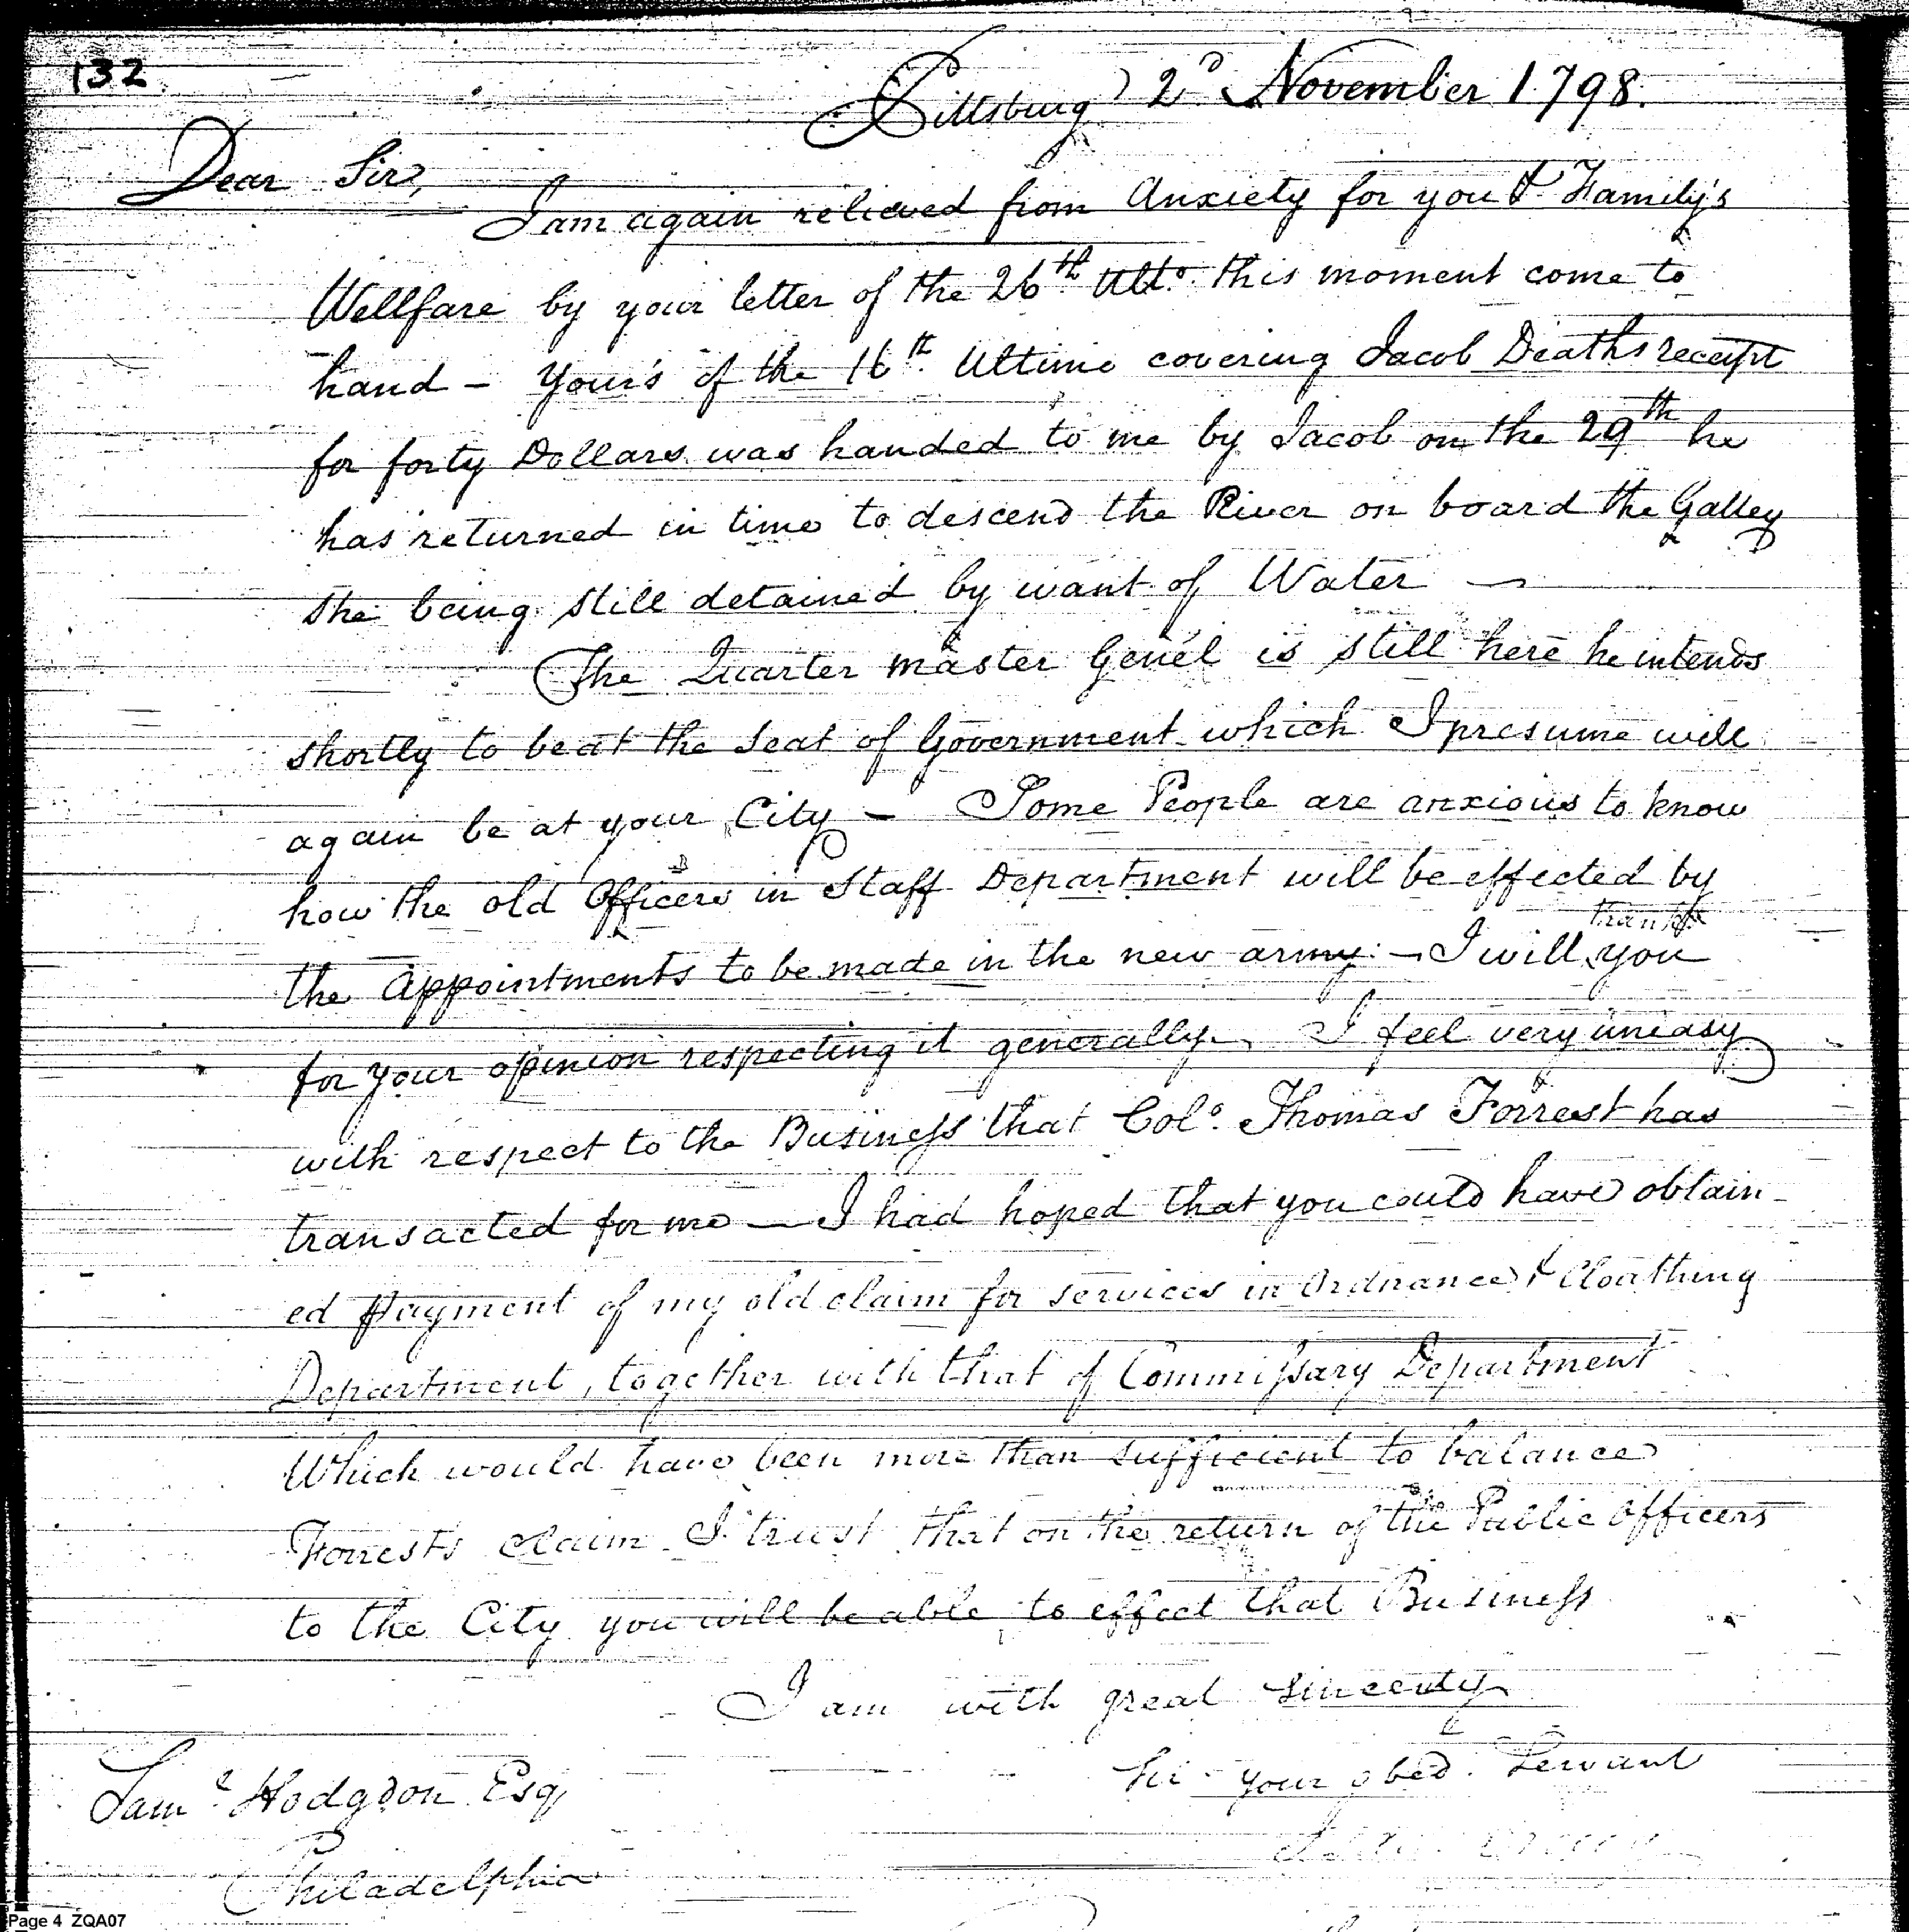 132
Pittsburg 2d November 1798.
Dear Sir,
I am again relieved from Anxiety for you & Family's
Wellfare by your letter of the 26th Ulto. this moment come to
hand – Your's of the 16th Ultimo covering Jacob Deaths receipt
for forty Dollars was handed to me by Jacob on the 29th he
has returned in time to descend the River on board the Galley
she being still detained by want of Water –
The Quarter master Genel is still here he intends
shortly to be at the Seat of Government which I presume will
again be at your City – Some People are anxious to know
how the old Officers in Staff Department will be effected by
thank
the appointments to be made in the new army – I will you
for your opinion respecting it generally. I feel very uneasy
with respect to the Business that Colo. Thomas Forrest has
transacted for me – I had hoped that you could have obtain-
ed payment of my old claim for services in Ordnance & Cloathing
Department, together with that of Commissary Department
Which would have been more than sufficient to balance
Forrests claim I trust that on the return of the Public Officers
to the City you will be able to effect that Business
I am with great sincerity
Sir your obed. Servant
Saml Hodgdon Esq
Philadelphia
Page 4 ZQA07